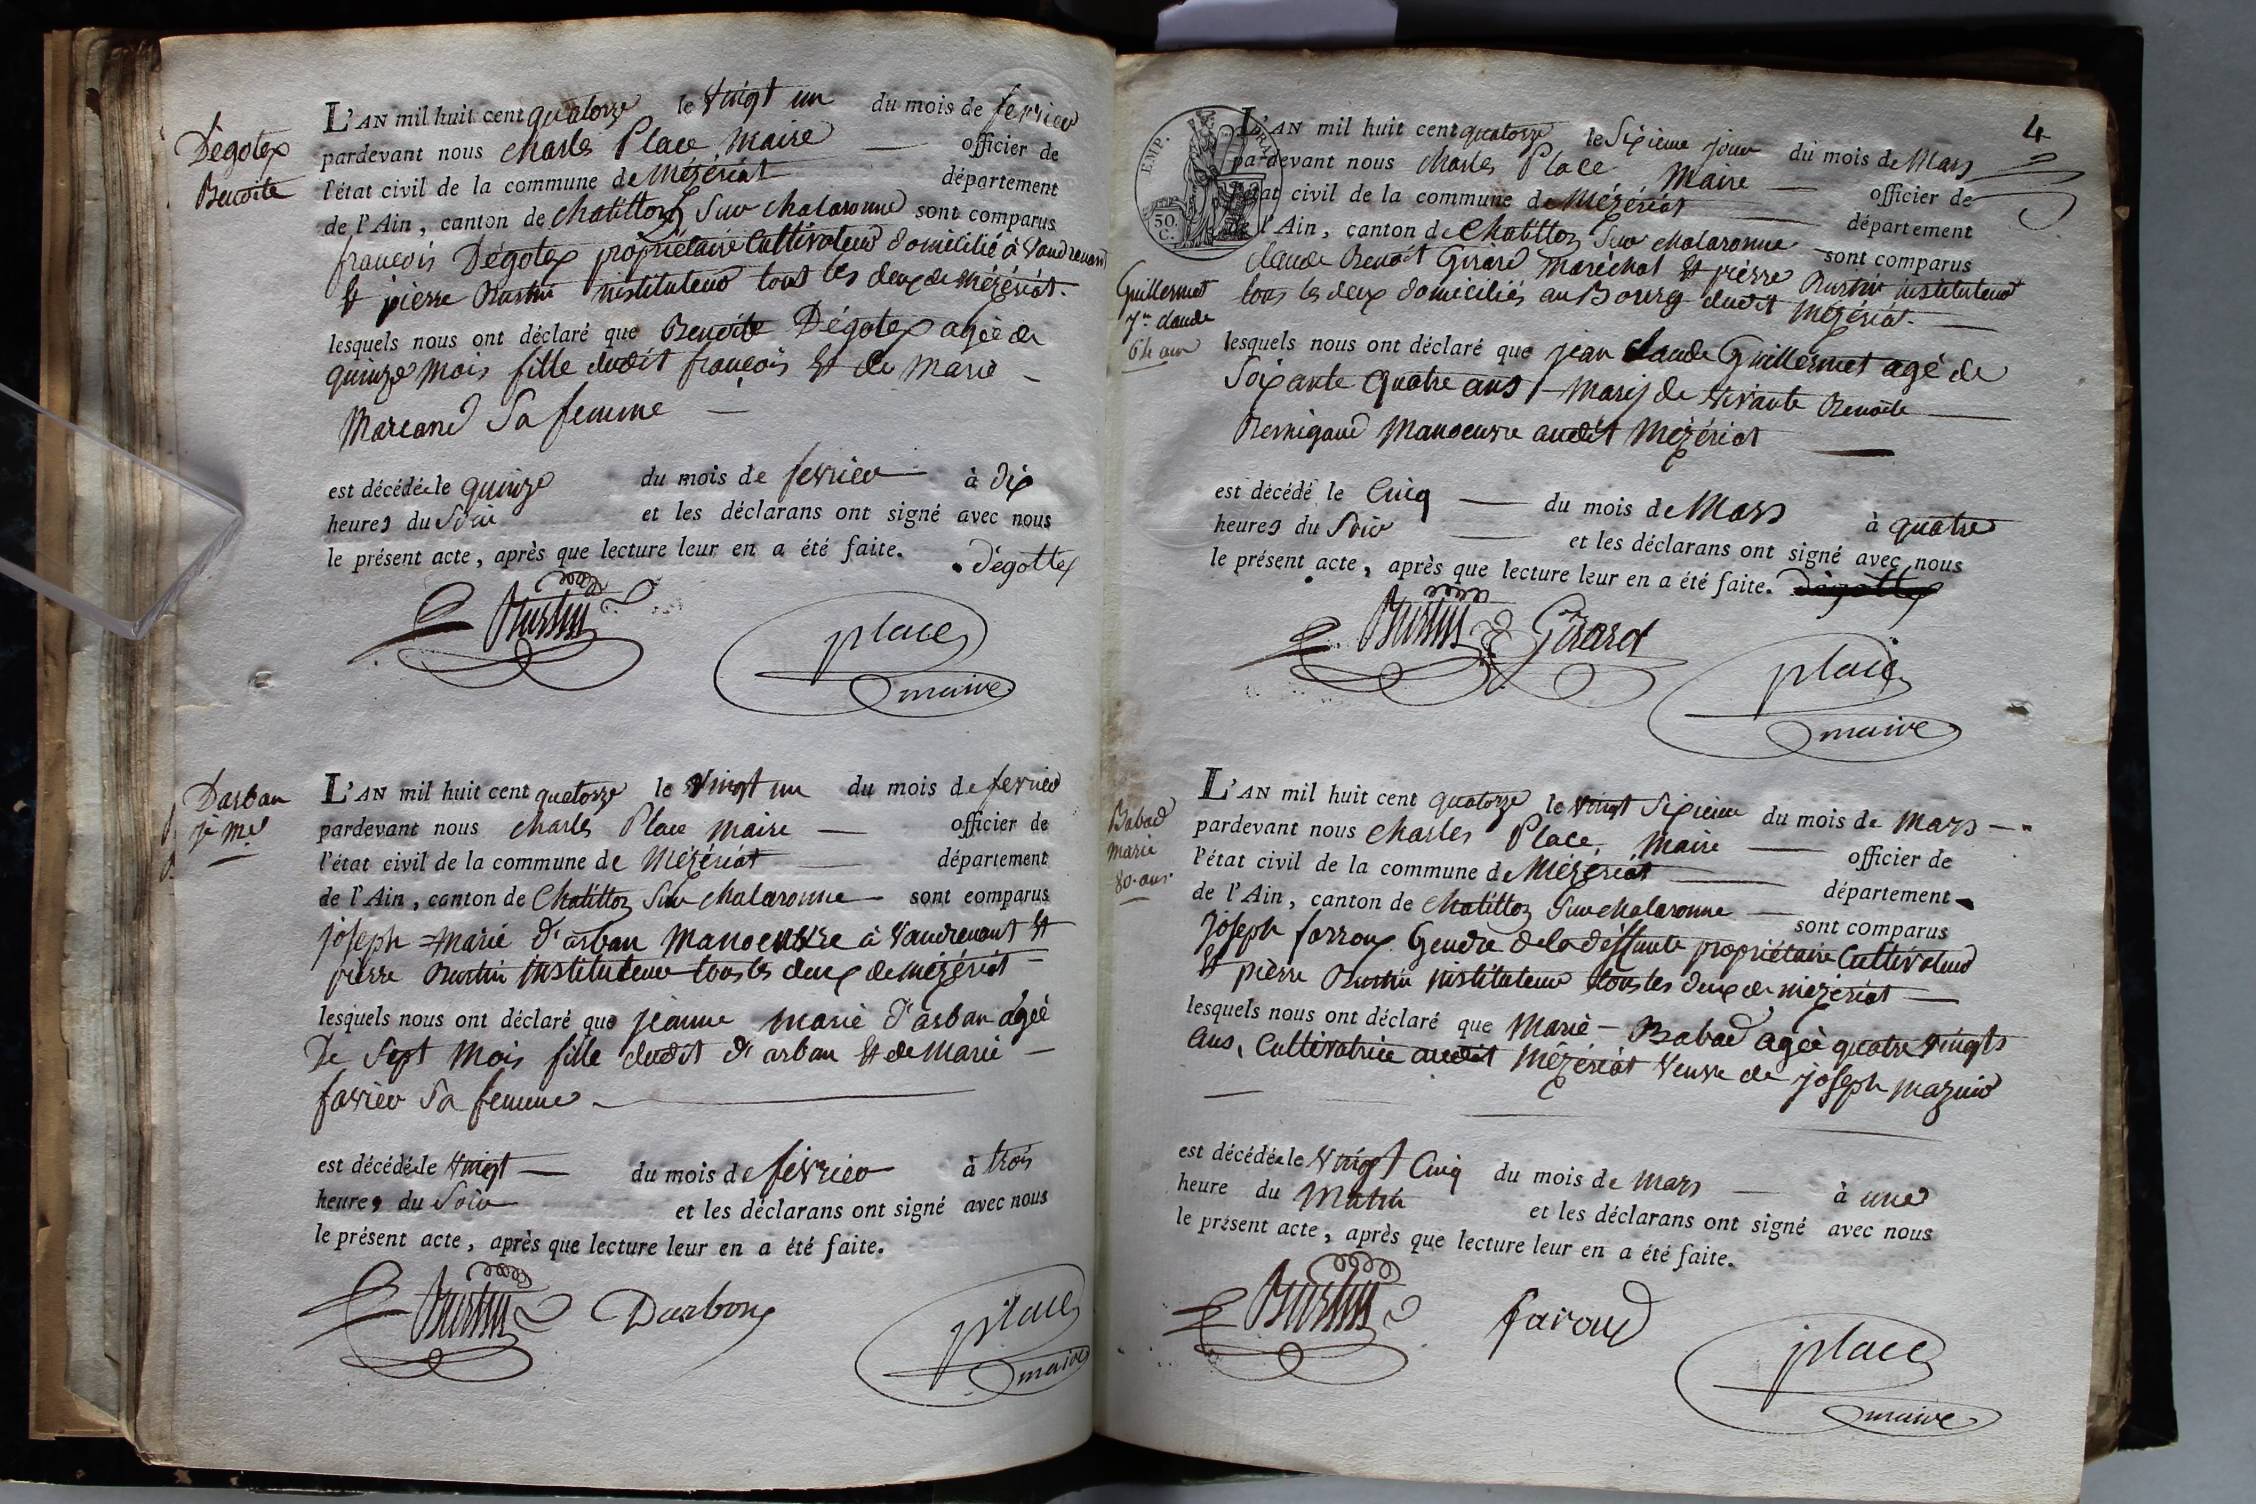 Dégotex
Benoite
L'AN mil huit cent quatorze le vingt un du mois de fevrier
pardevant nous charles Place Maire — officier de
l'état civil de la commune de Mézériat département
de l'Ain, canton de chatillon sur chalaronne sont comparus
françois Dégotex propriétaire Cultivateur domicilié à Vaudrenant
et pierre Burtin instituteur tout les deux de mézériat.
lesquels nous ont déclaré que Benoite Dégotex agée de
quinze mois fille dudit françois et de Marie —
Marcand sa femme —
est décédée le quinze du mois de fevrier — à dix
heures du soir et les déclarans ont signé avec nous
le présent acte, après que lecture leur en a été faite. dégottex
Burtin place
maire
Darban
je. me.
L'AN mil huit cent quatorze le vingt un du mois de fevrier
pardevant nous charles Place maire — officier de
l'état civil de la commune de Mézériat — département
de l'Ain, canton de Chatillon sur chalaronne — sont comparus
joseph = marie d'arban manoeuvre à Vaudrenant et
pierre Burtin instituteur tous les deux de mézériat —
lesquels nous ont déclaré que jeanne marie d'arban agée
De sept mois fille dudit d'arban et de Marie —
favier sa femme —
est décédée le vingt — du mois de février — à trois
heures du soir et les déclarans ont signé avec nous
le présent acte, après que lecture leur en a été faite.
Burtin Darbon place
maire
4
EMP.
50
C.
L'AN mil huit cent quatorze le sixieme jour du mois de Mars
pardevant nous charles Place Maire — officier de
l'état civil de la commune de Mézériat — département
de l'Ain, canton de Chatillon sur chalaronne — sont comparus
claude Benoit Girard maréchal et pierre Burtin instituteur
tous les deux domiciliés au Bourg dudit Mézériat. —
Guillermet
jn. claude
64 ans
lesquels nous ont déclaré que jean claude Guillermet agé de
soixante quatre ans, mary de vivante Benoite —
Bernigaud Manoeuvre audit Mézériat —
est décédé le Cinq — du mois de Mars à quatre
heures du soir — et les déclarans ont signé avec nous
le présent acte, après que lecture leur en a été faite. dégottex
Burtin Girard place
maire
Babad
marie
80. ans.
L'AN mil huit cent quatorze le vingt sixieme du mois de Mars —
pardevant nous charles Place, Maire — officier de
l'état civil de la commune de Mézériat — département
de l'Ain, canton de chatillon sur chalaronne — sont comparus
joseph farroux Gendre de la déffunte propriétaire Cultivateur
et pierre Burtin instituteur tous les deux de mézériat —
lesquels nous ont déclaré que Marie — Babad agée quatre vingts
ans, Cultivatrice audit Mézériat veuve de joseph mazuir
est décédée le vingt Cinq du mois de mars — à une
heure du Matin et les déclarans ont signé avec nous
le présent acte, après que lecture leur en a été faite.
Burtin faroud place
maire